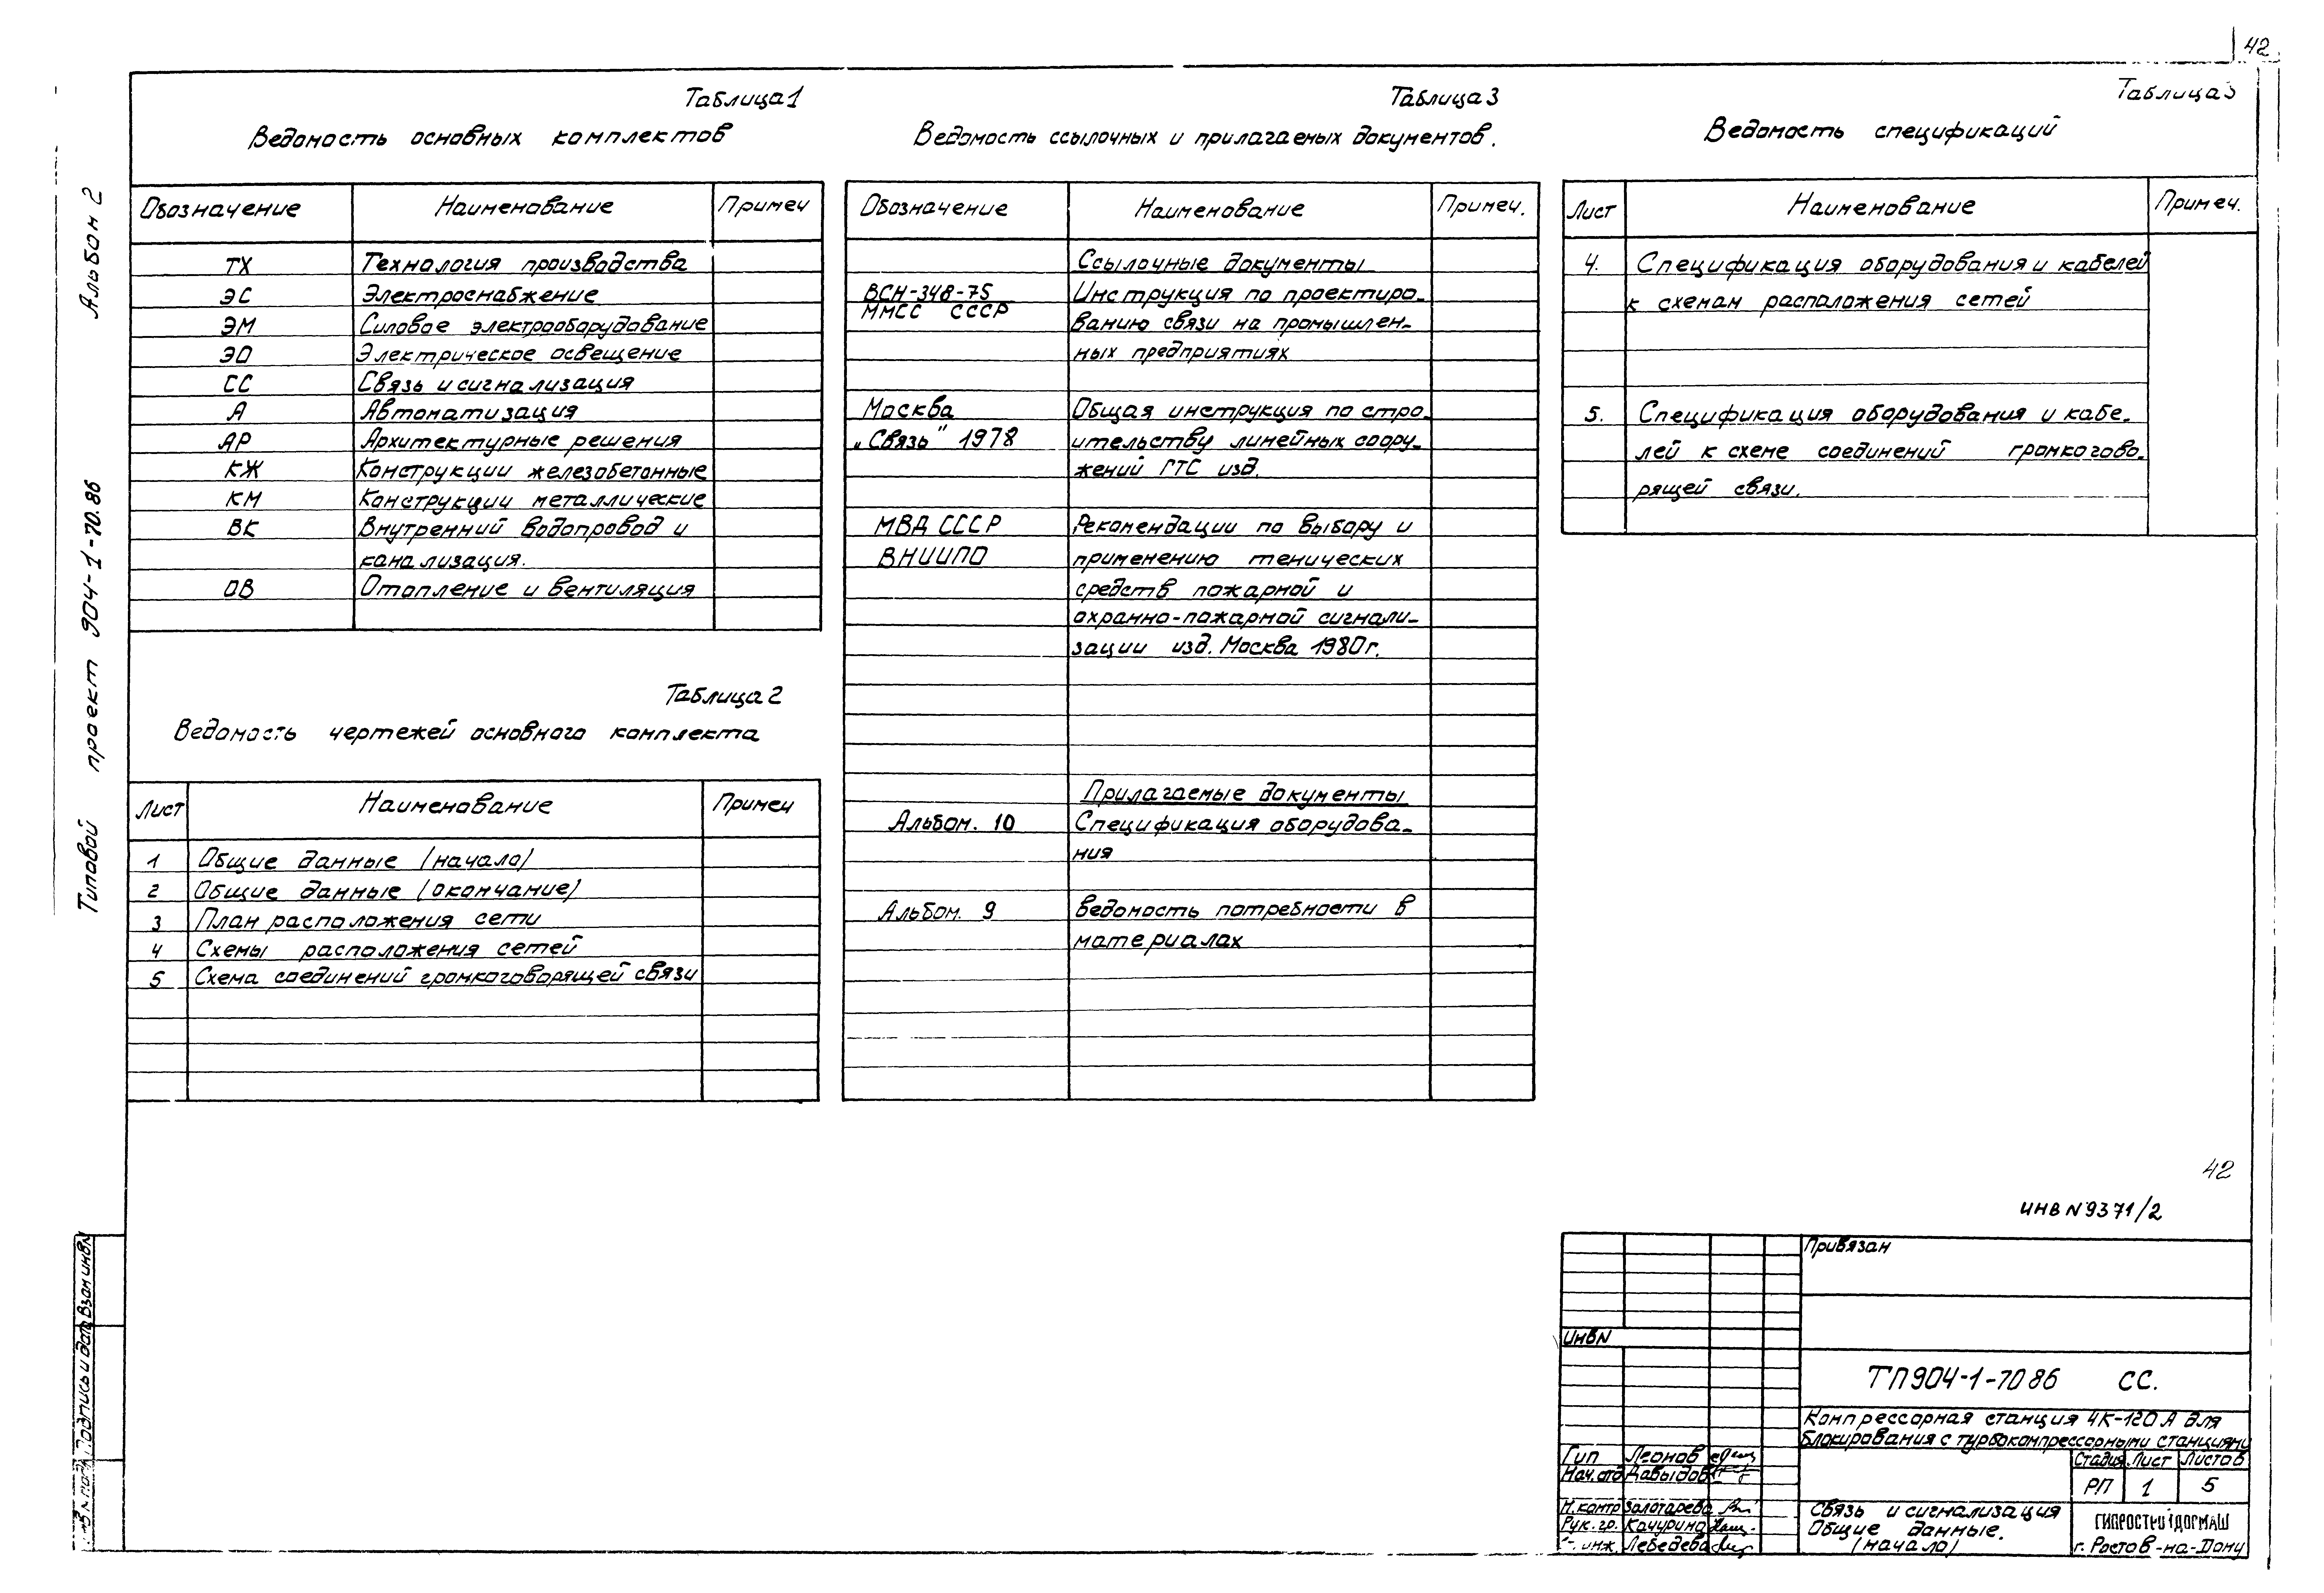 42
Альбом 2
Типовой проект 904-1-70.86
Таблица 1
Ведомость основных комплектов
Обозначение Наименование Примеч
ТХ Технология производства
ЭС Электроснабжение
ЭМ Силовое электрооборудование
ЭО Электрическое освещение
СС Связь и сигнализация
А Автоматизация
АР Архитектурные решения
КЖ Конструкции железобетонные
КМ Конструкции металлические
ВК Внутренний водопровод и
канализация.
ОВ Отопление и вентиляция
Таблица 2
Ведомость чертежей основного комплекта
Лист Наименование Примеч
1 Общие данные (начало)
2 Общие данные (окончание)
3 План расположения сети
4 Схемы расположения сетей
5 Схема соединений громкоговорящей связи
Таблица 3
Ведомость ссылочных и прилагаемых документов.
Обозначение Наименование Примеч.
Ссылочные документы
ВСН-348-75 Инструкция по проектиро-
ММСС СССР ванию связи на промышлен-
ных предприятиях
Москва Общая инструкция по стро-
„Связь" 1978 ительству линейных соору-
жений ГТС изд.
МВД СССР Рекомендации по выбору и
ВНИИПО применению тенических
средств пожарной и
охранно-пожарной сигнали-
зации изд. Москва 1980г.
Прилагаемые документы
Альбом. 10 Спецификация оборудова-
ния
Альбом. 9 Ведомость потребности в
материалах
Таблица 3
Ведомость спецификаций
Лист Наименование Примеч.
4. Спецификация оборудования и кабелей
к схемам расположения сетей
5. Спецификация оборудования и кабе-
лей к схеме соединений громкогово-
рящей связи.
42
ИНВ N 9371/2
Привязан
ИНВ N
ТП904-1-70 86 СС.
Компрессорная станция 4К-120 А для
блокирования с турбокомпрессорными станциями
Гип Леонов
Нач. отд Давыдов
Н. контр Золотарева
Рук. гр. Качурина
инж. Лебедева
Стадия Лист Листов
РП 1 5
Связь и сигнализация
Общие данные.
(начало)
г. Ростов-на-Дону
Взам инв N
Подпись и дата